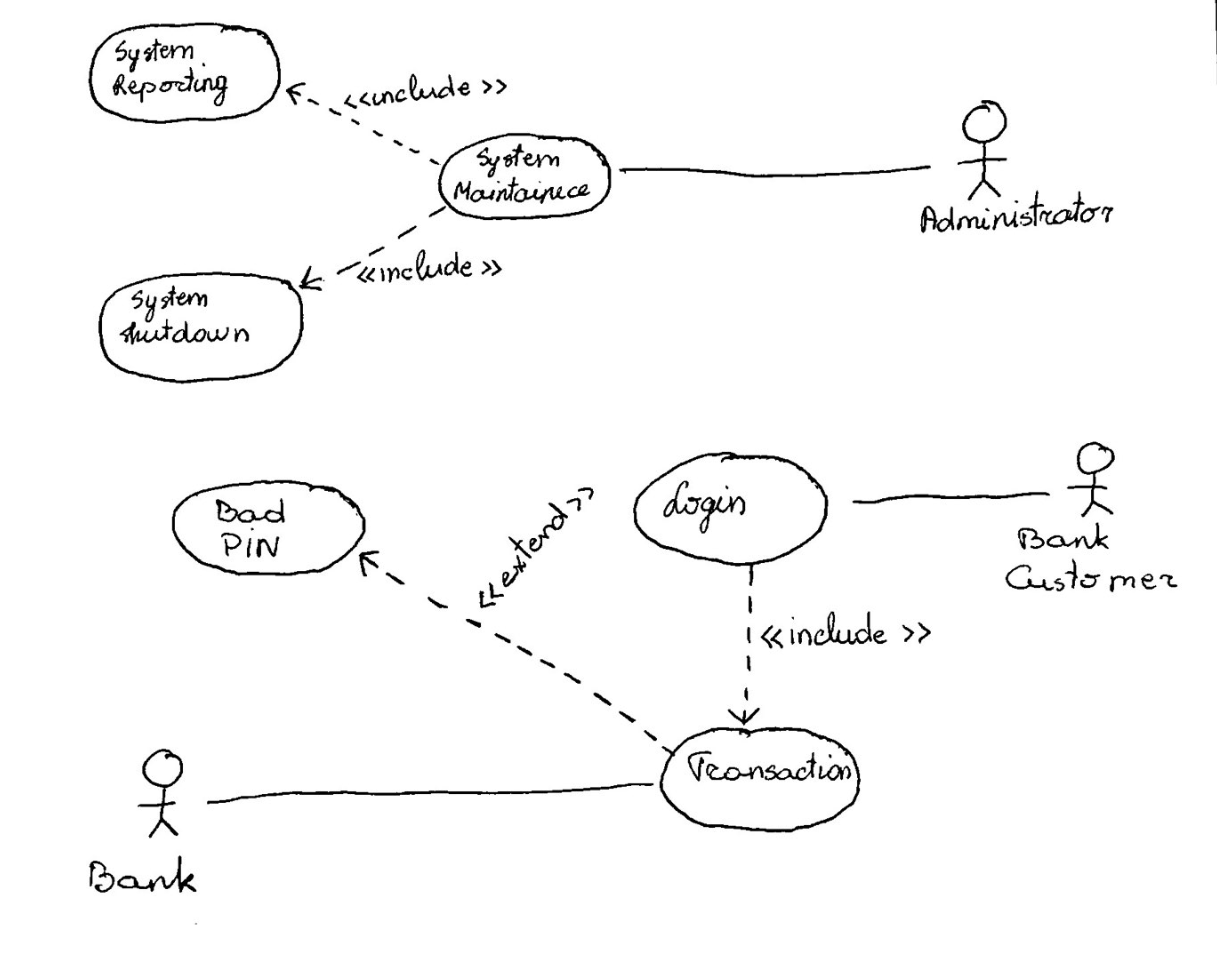 System
Reporting
<<include>>
System
Maintainece
Administrator
<<include>>
System
shutdown
Bad
PIN
<<extend>>
Login
Bank
Customer
<<include>>
Transaction
Bank